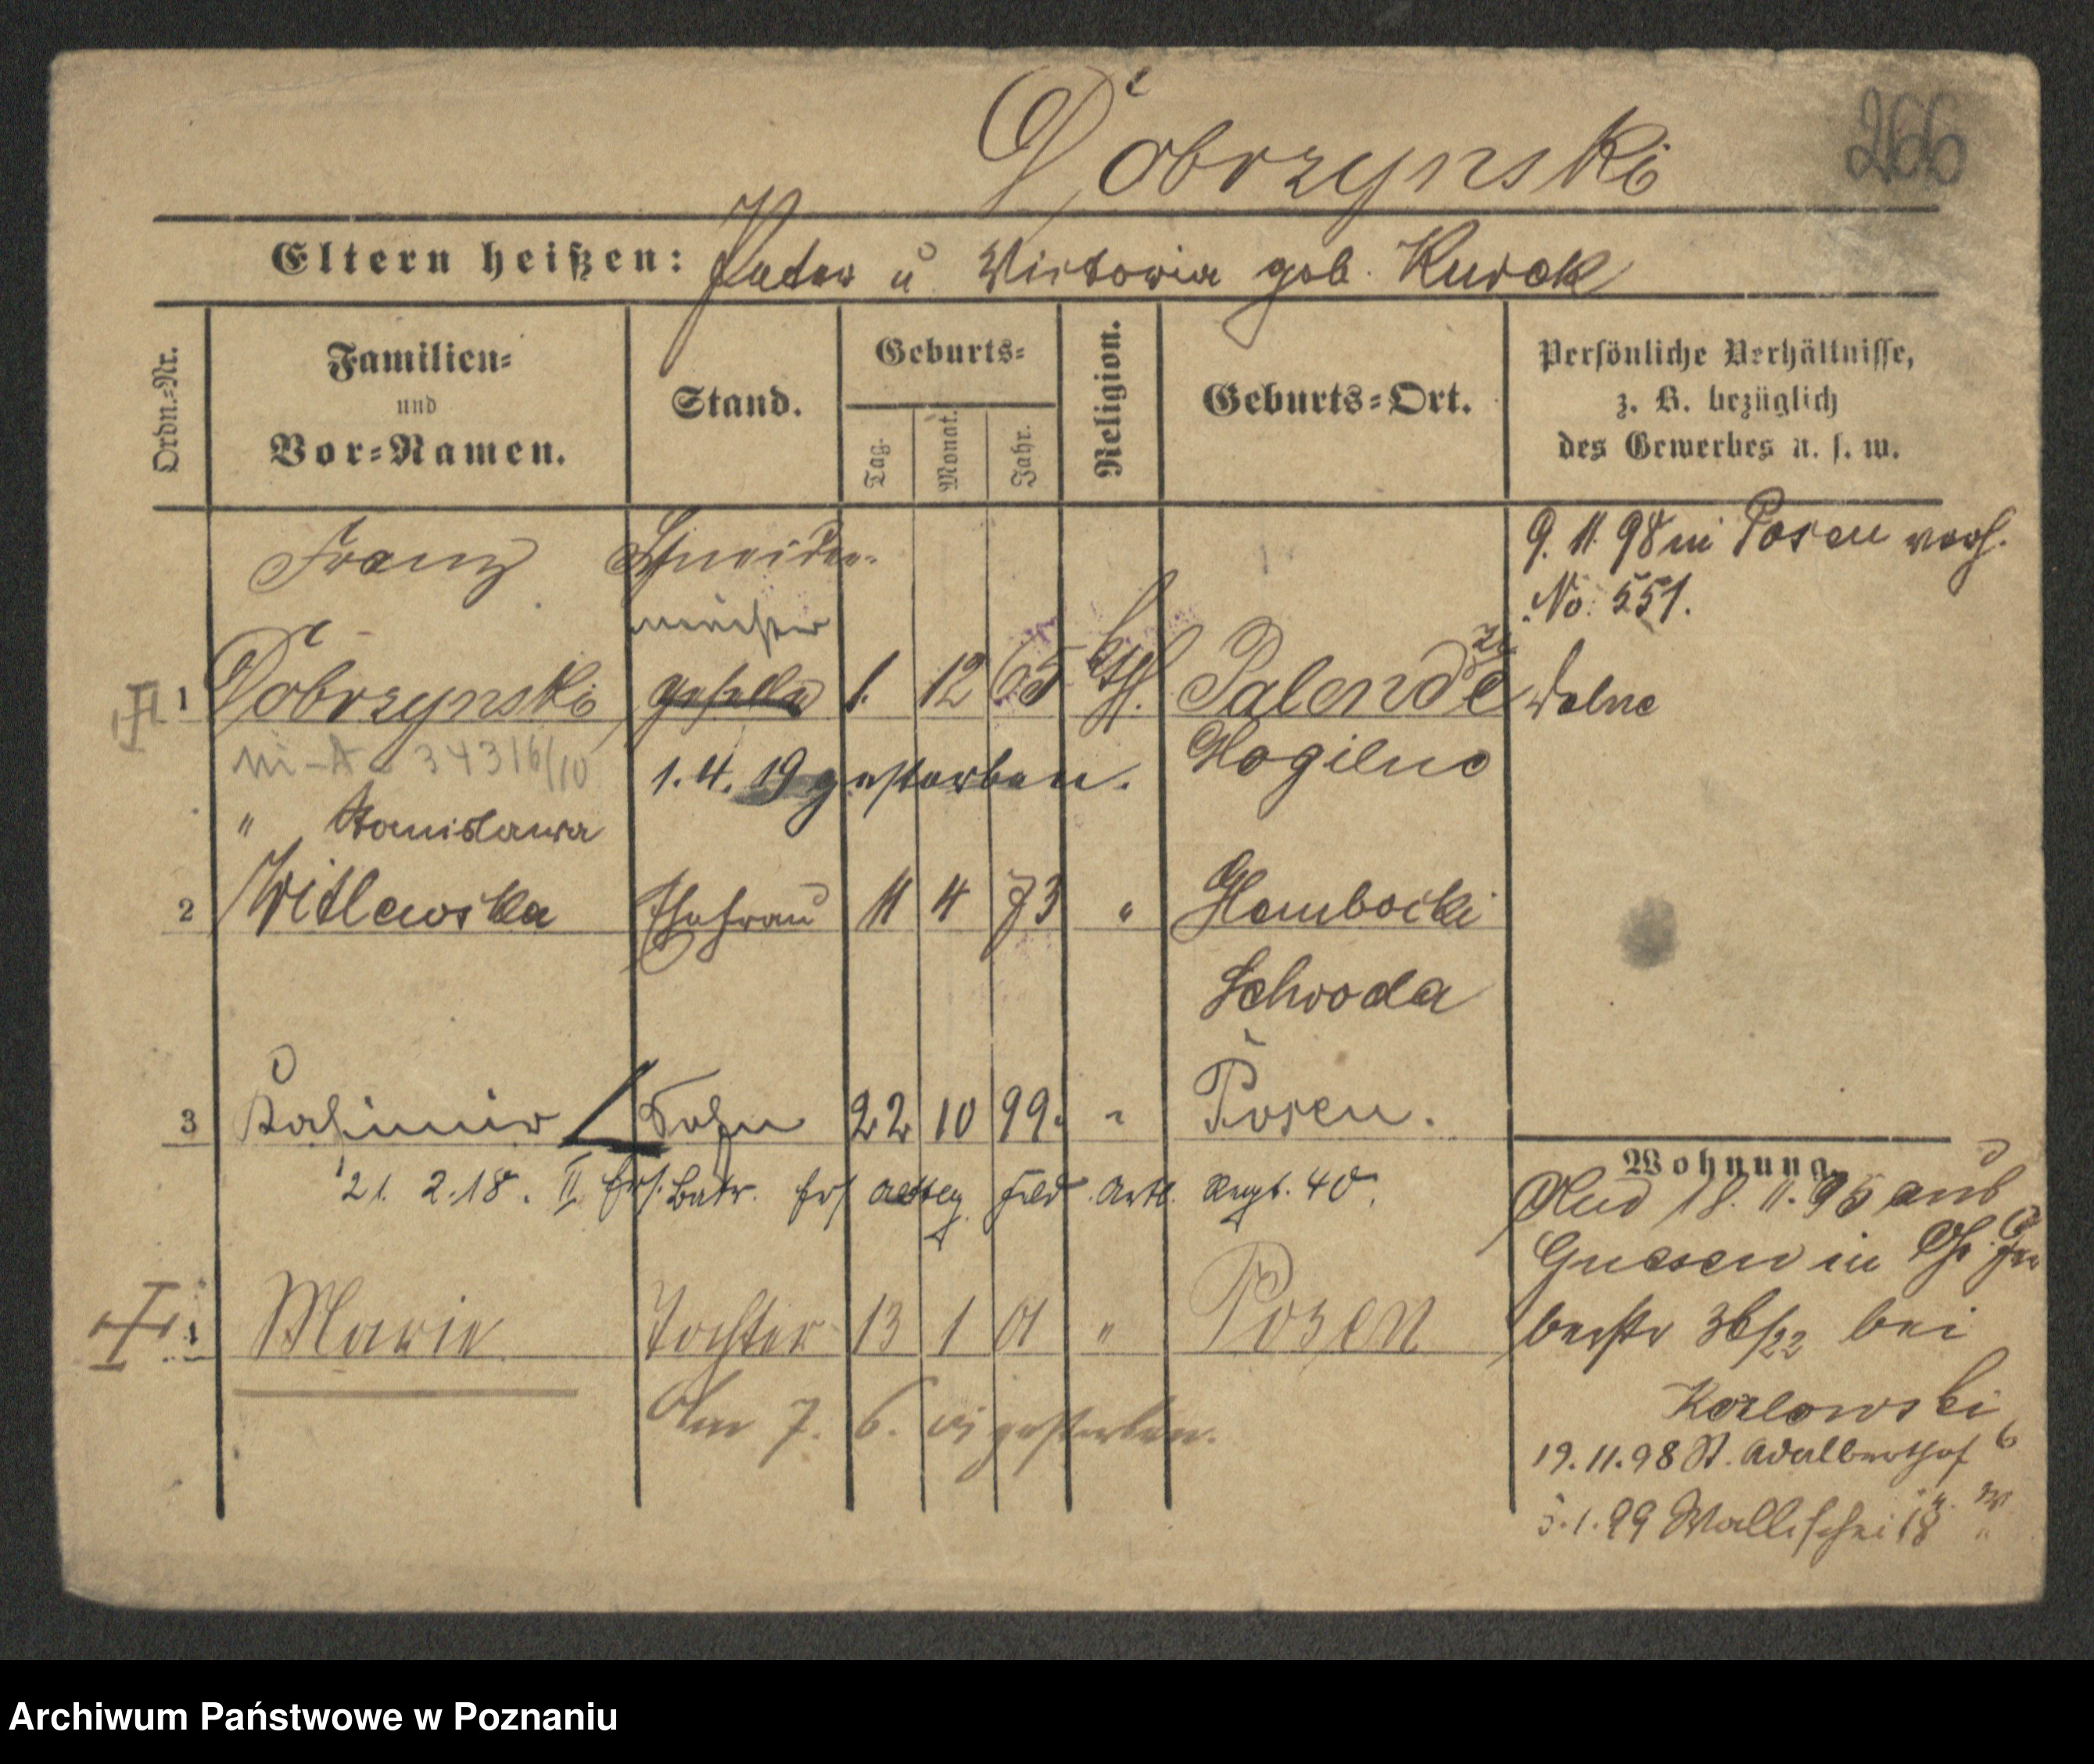 Dobrzynski
266
Eltern heißen: Peter u Victoria geb. Kurek
Ordn.=Nr.
Familien=
und
Vor=Namen.
Stand.
Geburts=
Tag.
Monat.
Jahr.
Religion.
Geburts=Ort.
Persönliche Verhältnisse,
z. B. bezüglich
des Gewerbes u. s. w.
Franz Schneider-
9. 11. 98 in Posen verh.
No. 551.
meister
1 Dobrzynski geselle 1. 12 65 kth. Palendzie dolne
34316/10
1. 4. 19 gestorben. Mogilno
" Stanislawa
2 Witlewska Ehefrau 11 4 73 " Glembocki
Schroda
3 Kasimir Sohn 22 10 99. " Posen.
21. 2. 18. II Ers. Batr. Ers Abtlg Feld Artl. Regt. 40.
Marie Tochter 13 1 01 " Posen
Am 7. 6. 01 gestorben.
Wohnung.
18. 11. 95 aus
Gnesen in
36/22 bei
Kozlowski
19. 11. 98 St. Adalberthof 6
5. 1. 99 Wallischei 18
Archiwum Państwowe w Poznaniu